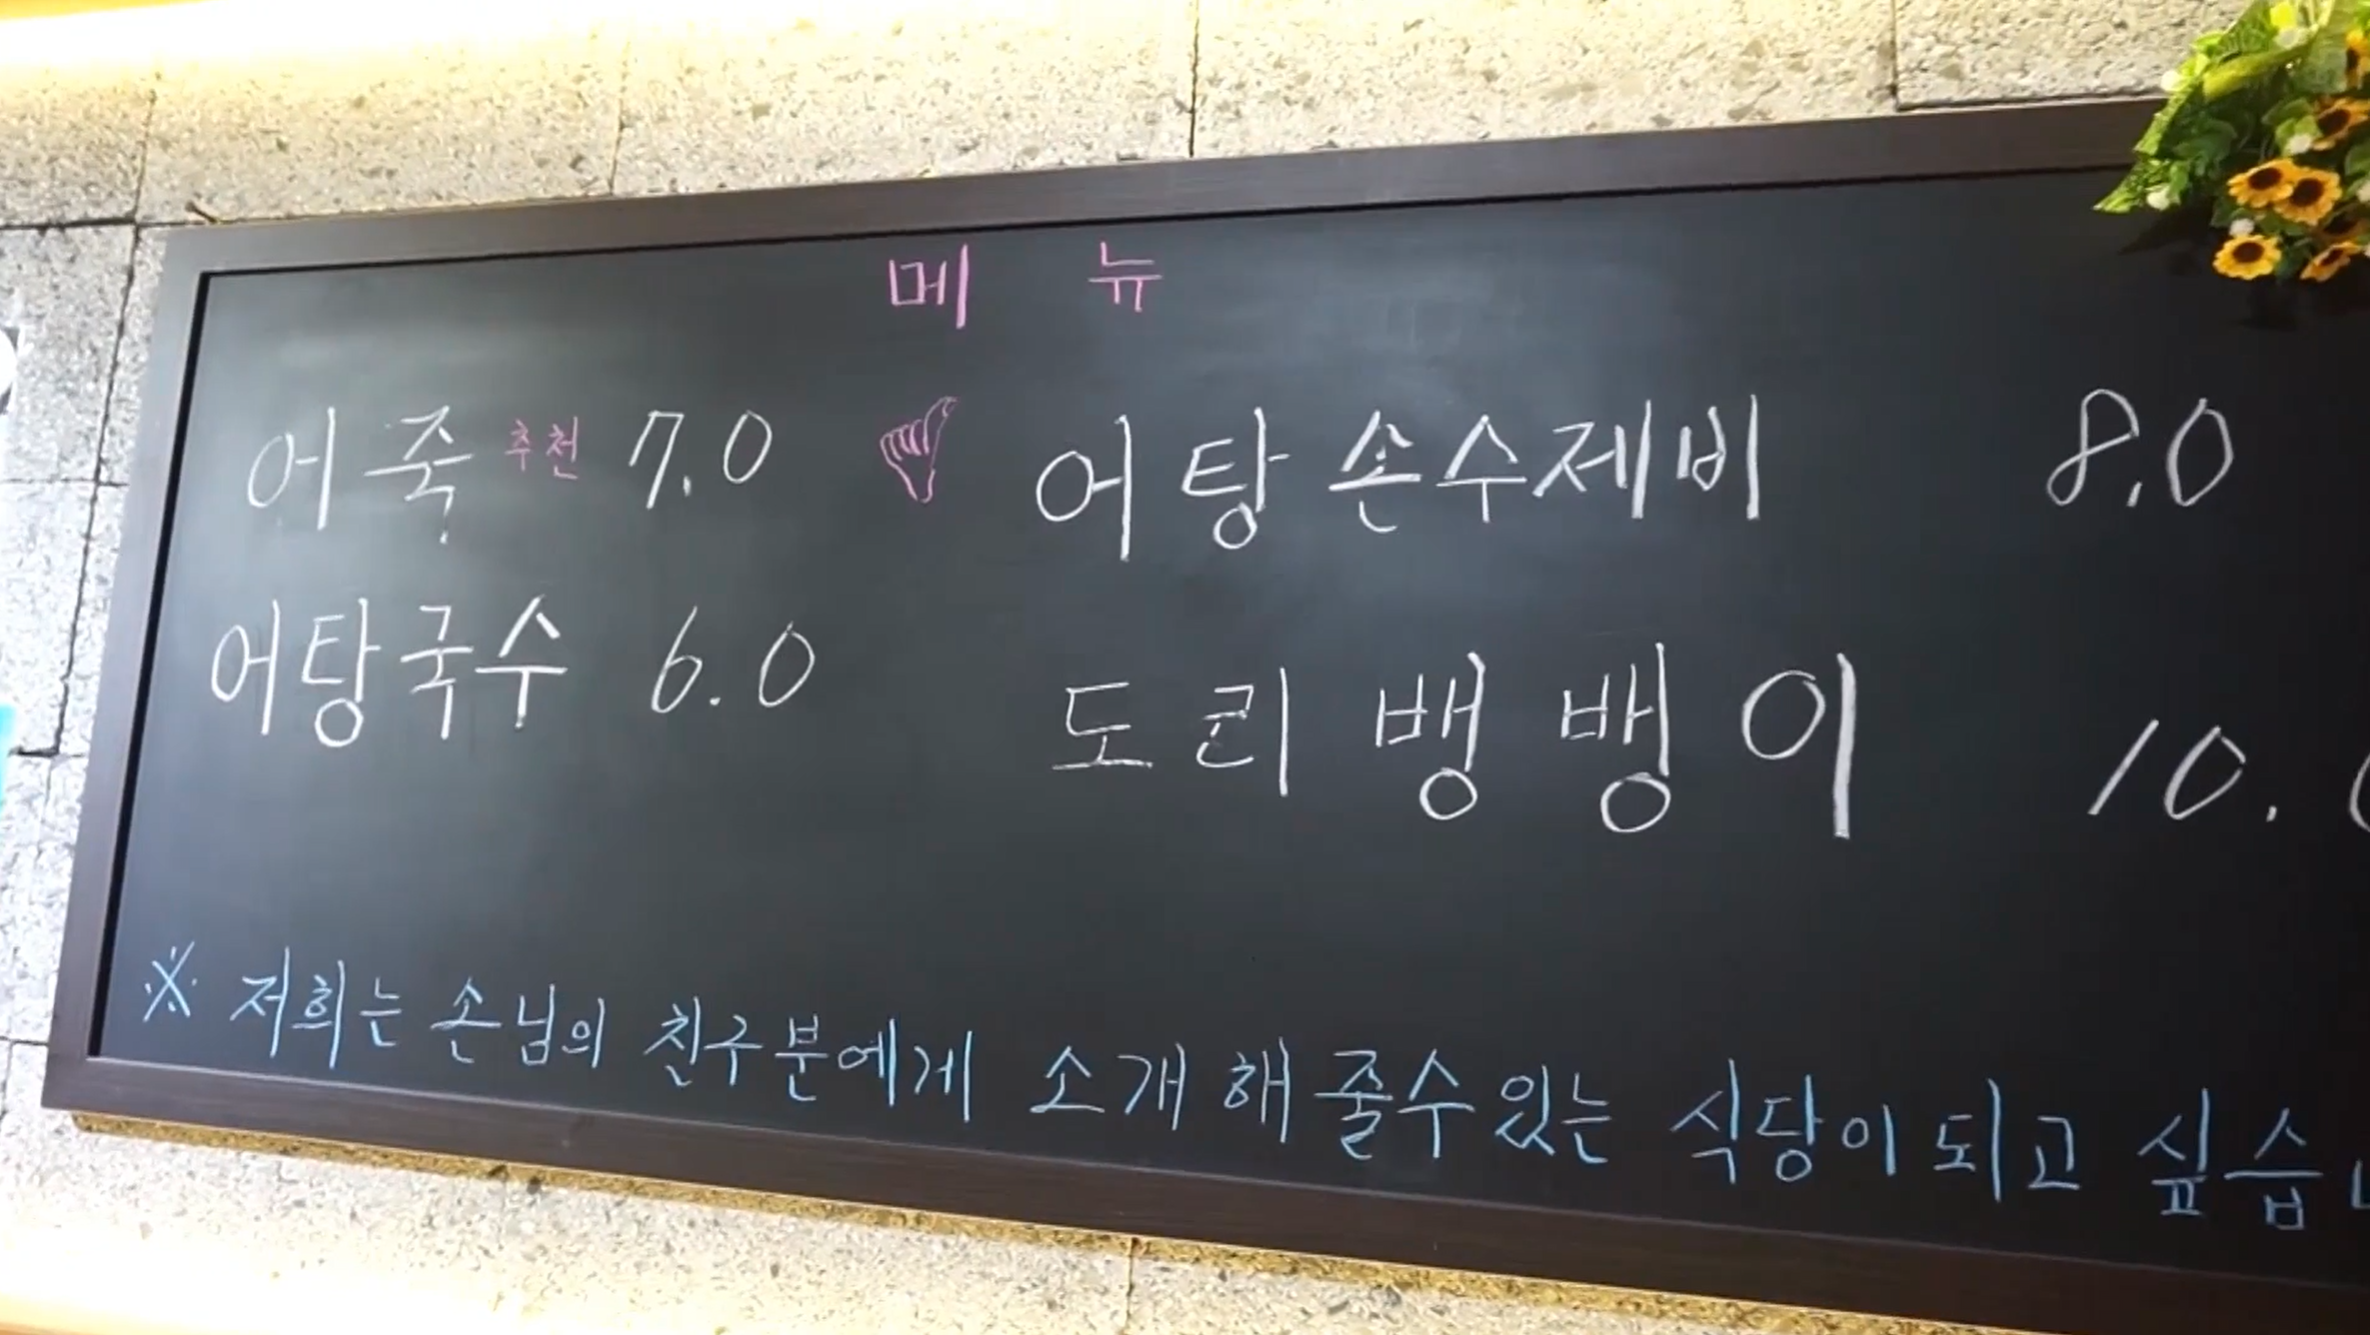 메 뉴
어죽 추천 7.0 어탕손수제비 8.0
어탕국수 6.0 도리뱅뱅이 10.
※ 저희는 손님의 친구분에게 소개해줄수있는 식당이되고 싶습